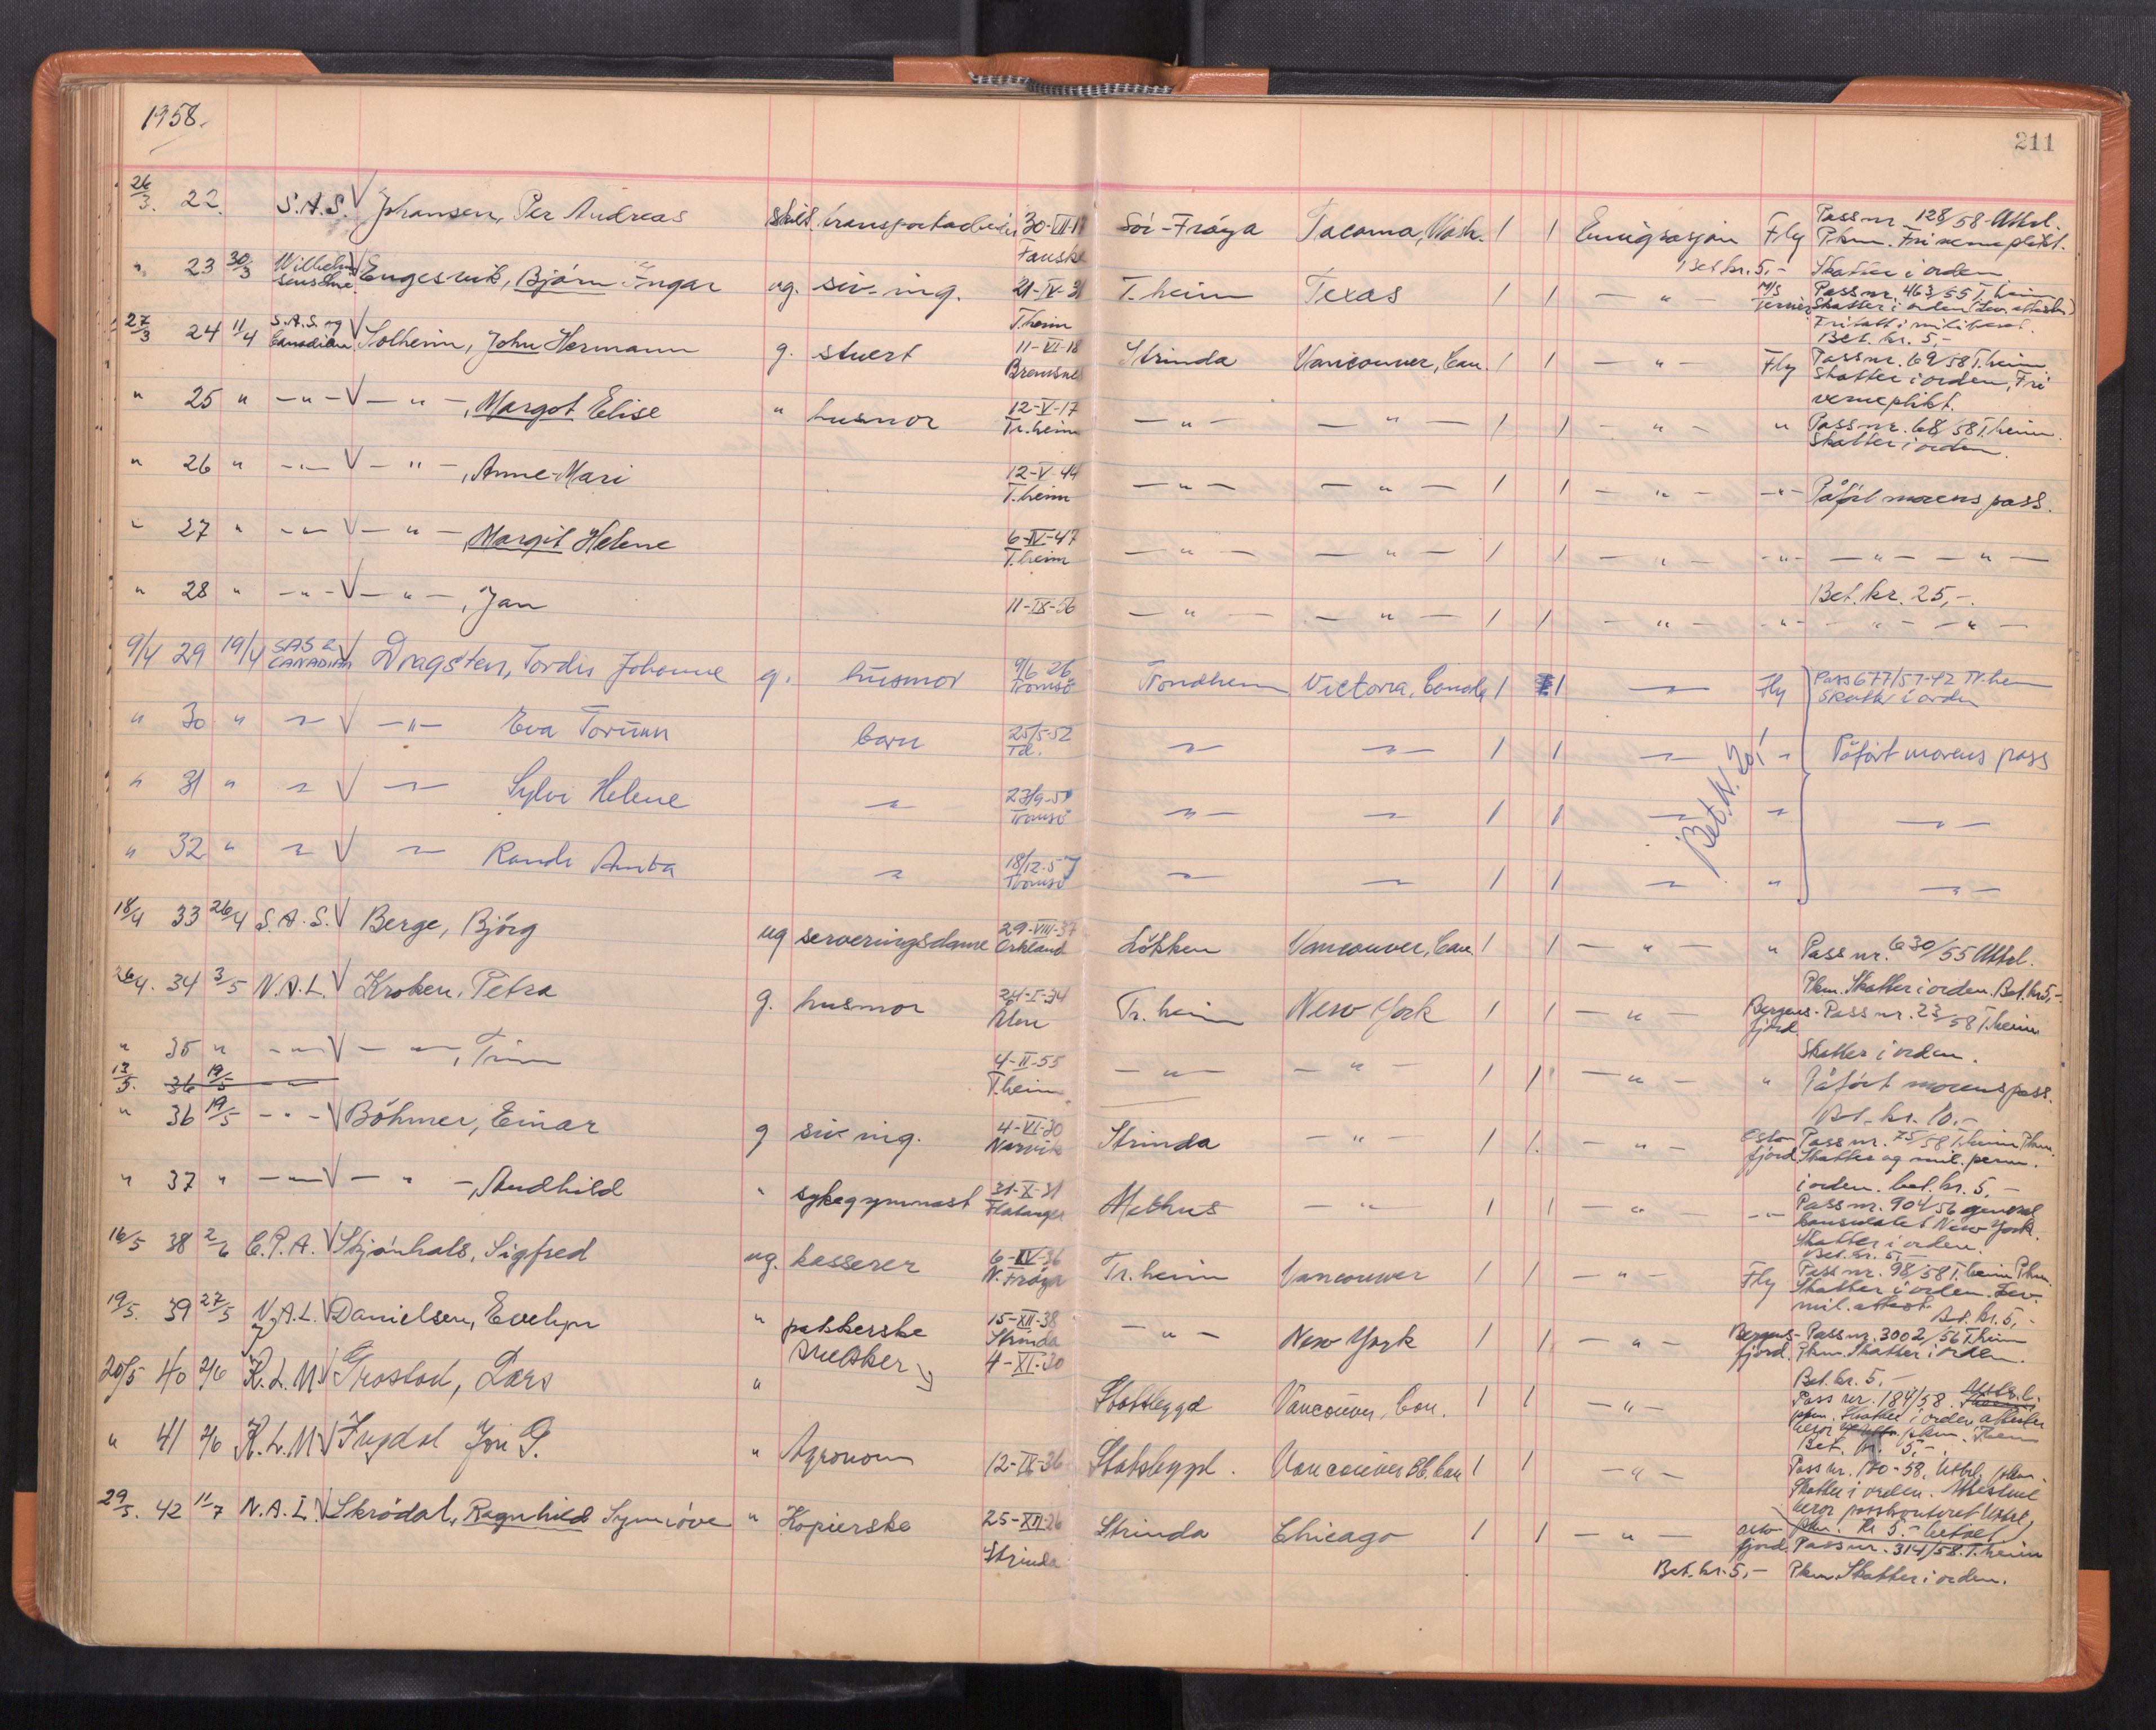 1958.
211
26/3. 22. S.A.S. Johansen, Per Andreas skilt transportarbeider 30-VII-17 Sör-Fröya Tacoma, Wash. 1 1 Emigrasjon Fly Pass nr. 128/58-Uttrl.
Fauske Pkm. Fri verneplikt.
Bet. kr. 5,- Skatter i orden
" 23 30/3 Wilhelmsenslinje Engesvik, Björn Ingar ug. siv-ing. 21-IV-31 T.heim Texas 1 1 — " — M/S Pass nr. 463/55 T.heim
T.heim Skatter i orden
Fritatt i
Bet. kr. 5,-
27/3 24 11/4 S.A.S. og Canadian Solheim, John Hermann g. stuert 11-VI-18 Strinda Vancouver, Can. 1 1 — " — Fly Pass nr. 69/58 T.heim
Bremsnes Skatter i orden, Fri
verneplikt.
" 25 " — " — — " —, Margot Elise " husmor 12-V-17 — " — — " — 1 1 — " — " Pass nr. 68/58 T.heim.
Tr.heim Skatter i orden.
" 26 " — " — — " —, Anne-Mari 12-V-44 — " — — " — 1 1 — " — - " - Påført morens pass.
T.heim
" 27 " — " — — " — Margit Helene 6-IV-47 — " — — " — 1 1 — " — - " - — " — — " —
T.heim
Bet. kr. 25,-.
" 28 " — " — — " —, Jan 11-IX-56 — " — — " — 1 1 — " — - " - — " — — " —
9/4 29 19/4 SAS & CANADIAN Dragsten, Tordis Johanne g. husmor 9/6 26 Trondheim Victoria, Canada 1 1 — " — Fly Pass 677/57-42 Tr.heim
Tromsö Skatte i orden
" 30 " " — " — Eva Torunn barn 25/5-52 — " — — " — 1 1 — " — " Påført morens pass
Td.
Bet. kr. 20,-
" 31 " " — " — Sylvi Helene " 23/9-51 — " — — " — 1 1 — " — " — " —
Tromsö
" 32 " " — " — Randi Anita " 18/12-57 — " — — " — 1 1 — " — " — " —
Tromsö
18/4 33 26/4 S.A.S. Berge, Björg ug serveringsdame 29-VIII-37 Lökken Vancouver, Can 1 1 — " — " Pass nr. 630/55 Uttrl.
Orkland Pkm. Skatter i orden. Bet. kr 5,-.
26/4. 34 3/5 N.A.L. Kroken, Petra g. husmor 24-I-34 Tr.heim New York 1 1 — " — Bergensfjord Pass nr. 23/58 T.heim
Ålen Skatter i orden.
" 35 " — " — — " —, Trim 4-II-55 — " — — " — 1 1 — " — " Påført morens pass.
T.heim Bet. kr. 10,-
13/5. 36 19/5 — " —
" 36 19/5 — " — Böhmer, Einar g siv ing. 4-VI-30 Strinda — " — 1 1 — " — Oslofjord Pass nr. 75/58 T.heim Pkm.
Narvik Skatter og mil. perm.
i orden. bet. kr. 5,-
" 37 " — " — — " —, Audhild " sykegymnast 31-X-31 Melhus — " — 1 1 — " — - " - Pass nr. 904/56 general
Flatanger konsulatet New York.
Skatter i orden.
Bet. kr. 5,-
16/5 38 2/6 C.P.A. Skjönhals, Sigfred ug. kasserer 6-IV-36 Tr.heim Vancouver 1 1 — " — Fly Pass nr. 98/58 T.heim Pkm.
N. Fröya Skatter i orden. Lev.
mil. attest. Bet. kr. 5,-
19/5. 39 27/5 N.A.L. Danielsen, Evelyn " pakkerske 15-XII-38 — " — New York 1 1 — " — Bergensfjord Pass nr. 3002/56 T.heim
Strinda Pkm. Skatter i orden.
Bet. kr. 5,-
20/5 40 2/6 K.L.M Grostad, Lars " snekker 4-XI-30 Stadsbygd Vancouver, Can. 1 1 — " — Pass nr. 184/58. Uttr.l.
pkm. Skatter i orden attester
beror pkm.
Bet. kr. 5,-.
" 41 2/6 K.L.M Fugdal Jon G. " Agronom 12-IX-36 Stadsbygd. Vancouver BC. Can 1 1 — " — Pass nr. 180-58, Uttrl. pkm.
Skatter i orden.
beror passkontoret Uttrl.
pkm. Kr 5.- betalt
29/5. 42 11/7 N.A.L. Skrödal, Ragnhild Synnöve " Kopierske 25-XII-26 Strinda Chicago 1 1 — " — Oslofjord. Pass nr. 314/58. T.heim
Strinda Bet. kr. 5,- Pkm. Skatter i orden.